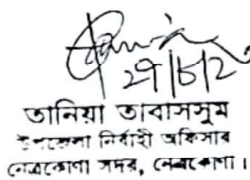 ২৭/৮/২
তানিয়া তাবাসসুম
উপজেলা নির্বাহী অফিসার
নেত্রকোণা সদর, নেত্রকোণা।